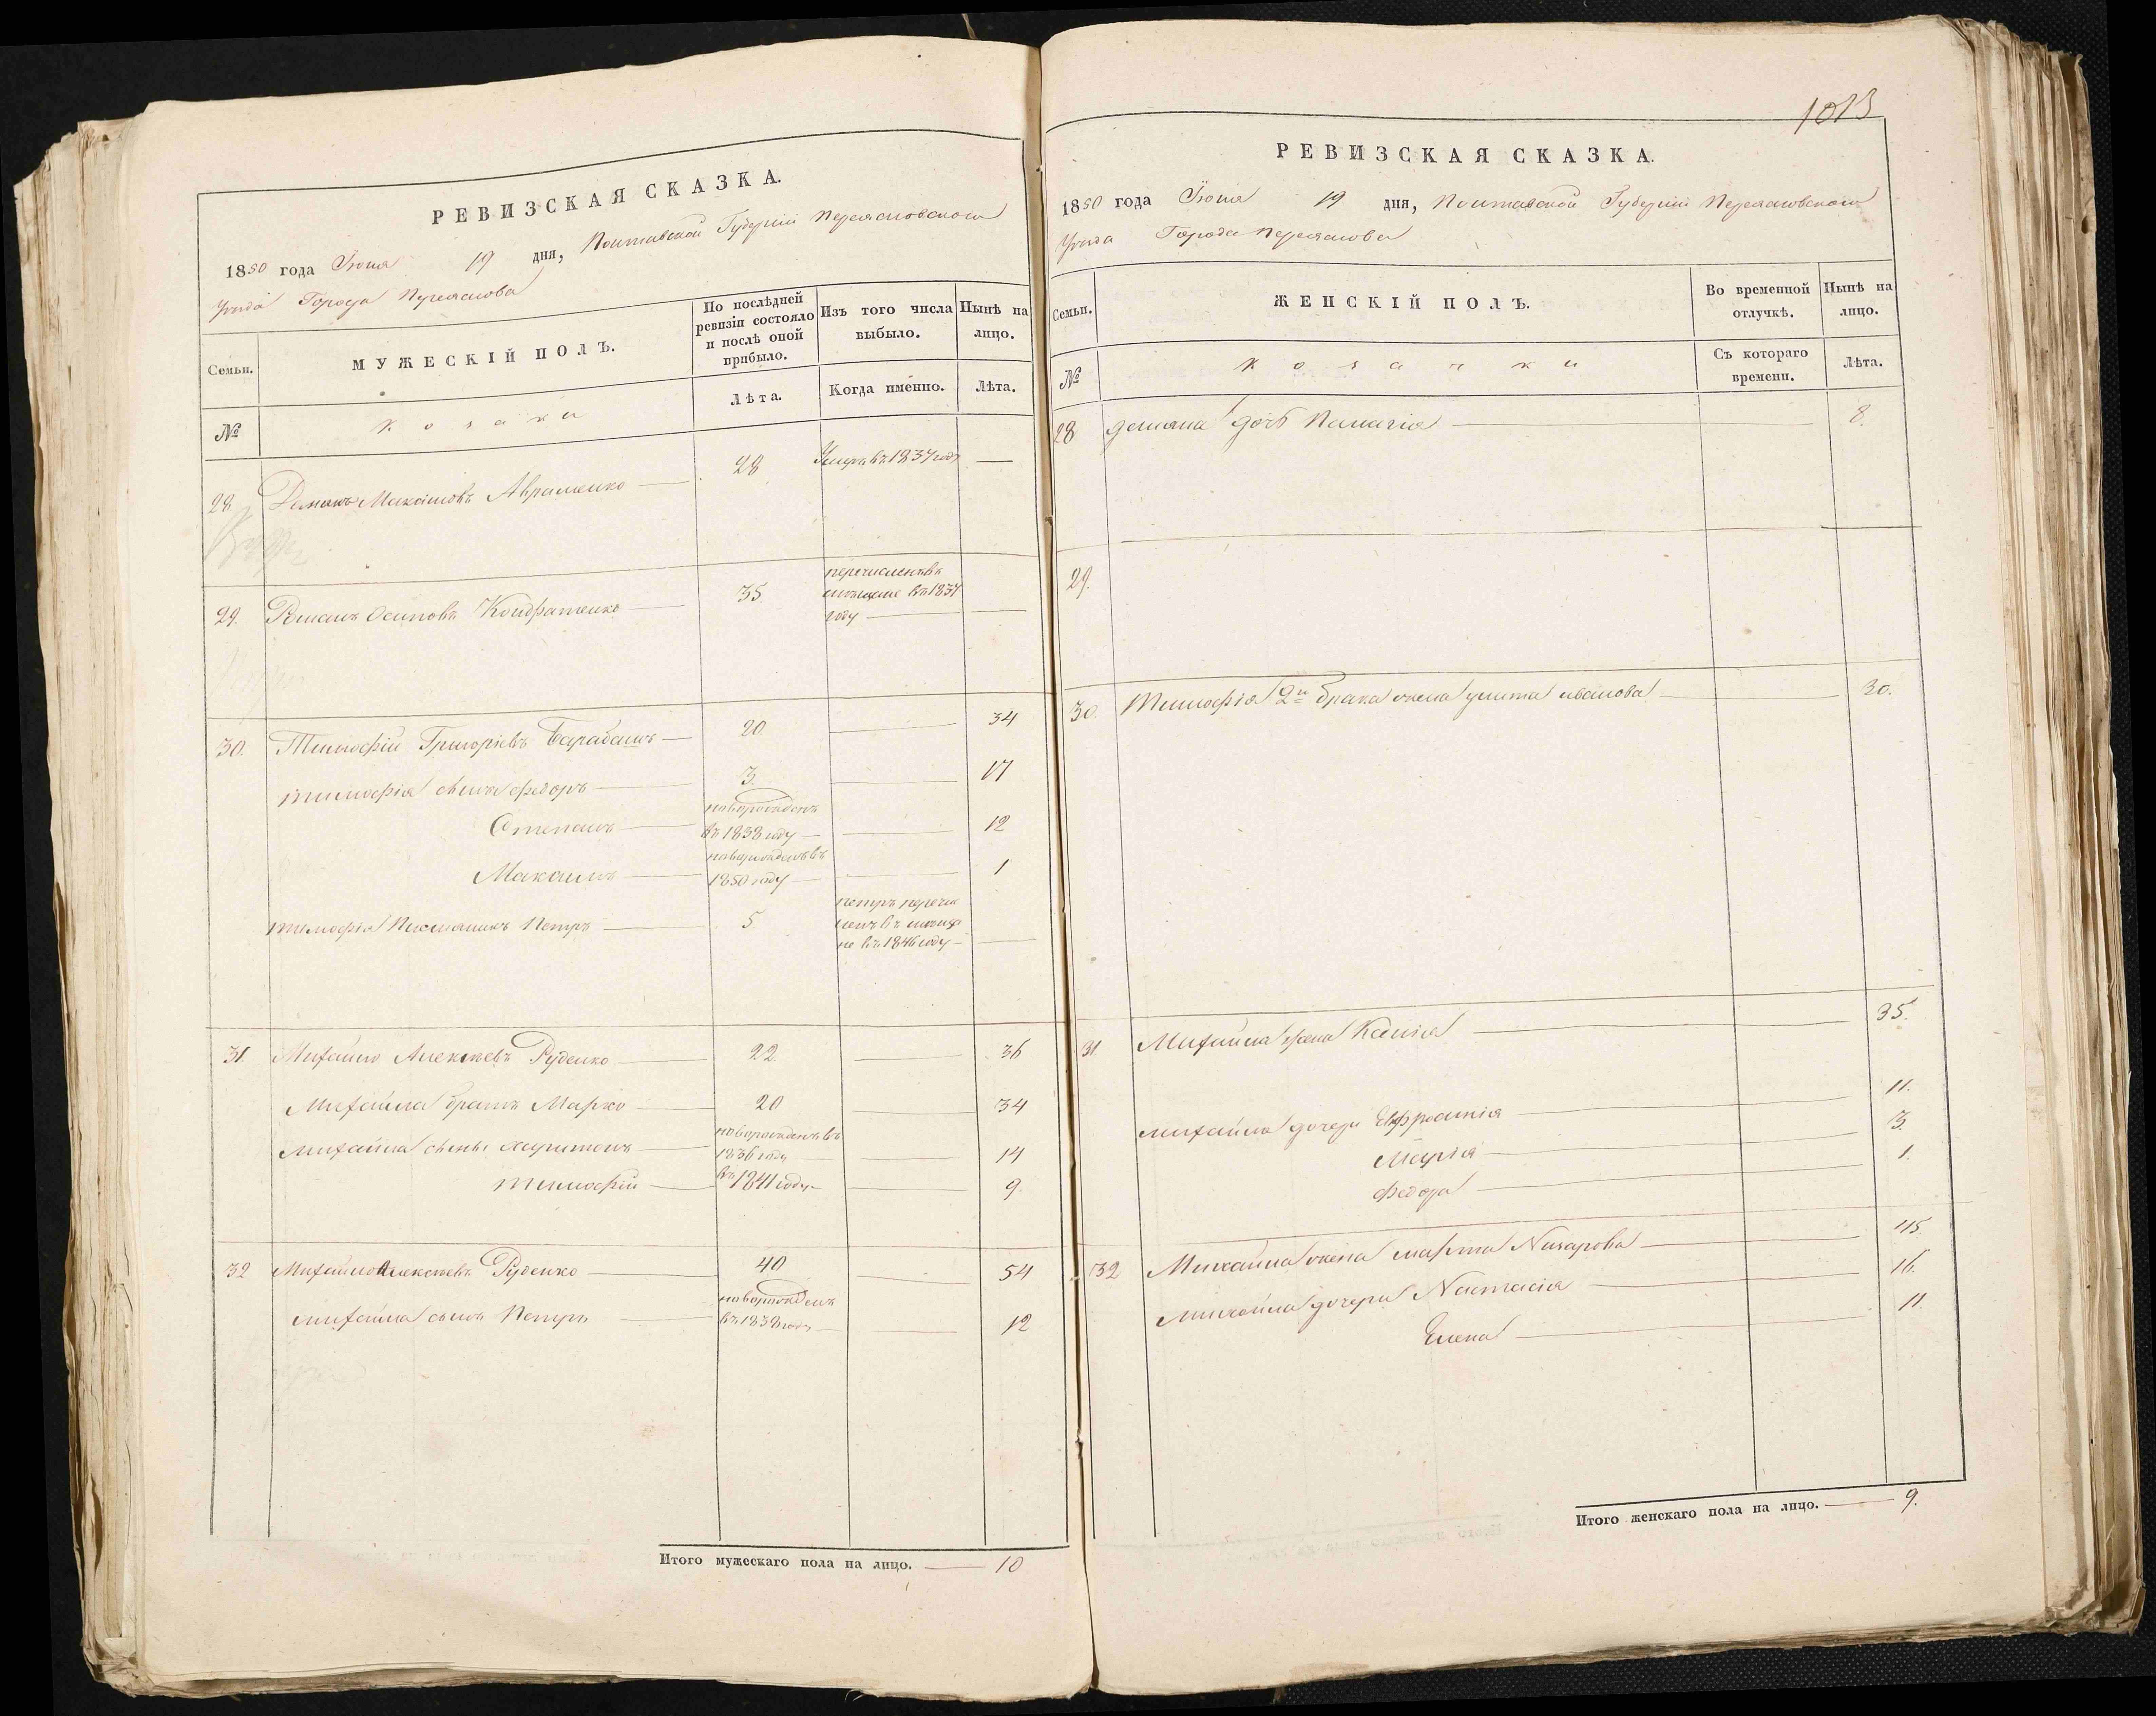 РЕВИЗСКАЯ СКАЗКА.
1850 года Іюня 19 дня, Полтавской Губерніи Переясловского
Уѣзда Города Переяслова
Семьи.
МУЖЕСКІЙ ПОЛЪ.
По послѣдней ревизіи состояло и послѣ оной прибыло.
Изъ того числа выбыло.
Нынѣ на лицо.
№
Козаки
Лѣта.
Когда именно.
Лѣта.
28. Демянъ Максимовъ Авраменко — 28 Умеръ въ 1837 году —
29. Романъ Осиповъ Кондратенко — 35. перечисленъ въ
мѣщане въ 1837
году — —
30. Тимофій Григоріевъ Барабашъ — 20. — 34
тимофія сынъ федоръ — 3. — 17
Степанъ — новорожденъ
въ 1838 году — — 12
Максимъ — новорожденъ въ
1850 году — — 1
тимофія Петръ — 5 петръ перечис
ленъ въ
въ 1846 году — —
31. Михайло Алексѣевъ Руденко — 22 — 36
Михайла братъ Марко — 20 — 34
михайла сыны харитонъ — новорожденъ въ
1836 году — — 14
тимофій — въ 1841 году — — 9.
32 Михайло Алексѣевъ Руденко — 40 — 54
михайла сынъ Петръ — новорожденъ
въ 1838 году — — 12
Итого мужескаго пола на лицо. — 10
1013
РЕВИЗСКАЯ СКАЗКА.
1850 года Іюня 19 дня, Полтавской Губерніи Переясловского
Уѣзда Города Переяслова
Семьи.
ЖЕНСКІЙ ПОЛЪ.
Во временной отлучкѣ.
Нынѣ на лицо.
№
Козачки
Съ котораго времени.
Лѣта.
28 демяна дочь Палагія — — 8.
29.
30. Тимофія 2й брака жена улита иванова — — 30.
31 Михайла жена Ксенія — — 35.
михайла дочери Евфросинія — — 11.
Марія — — 3.
Федора — — 1.
32 Михайла жена марта Назарова — — 45.
михайла дочери Настасія — — 16.
Елена — — 11.
Итого женскаго пола на лицо. — 9.